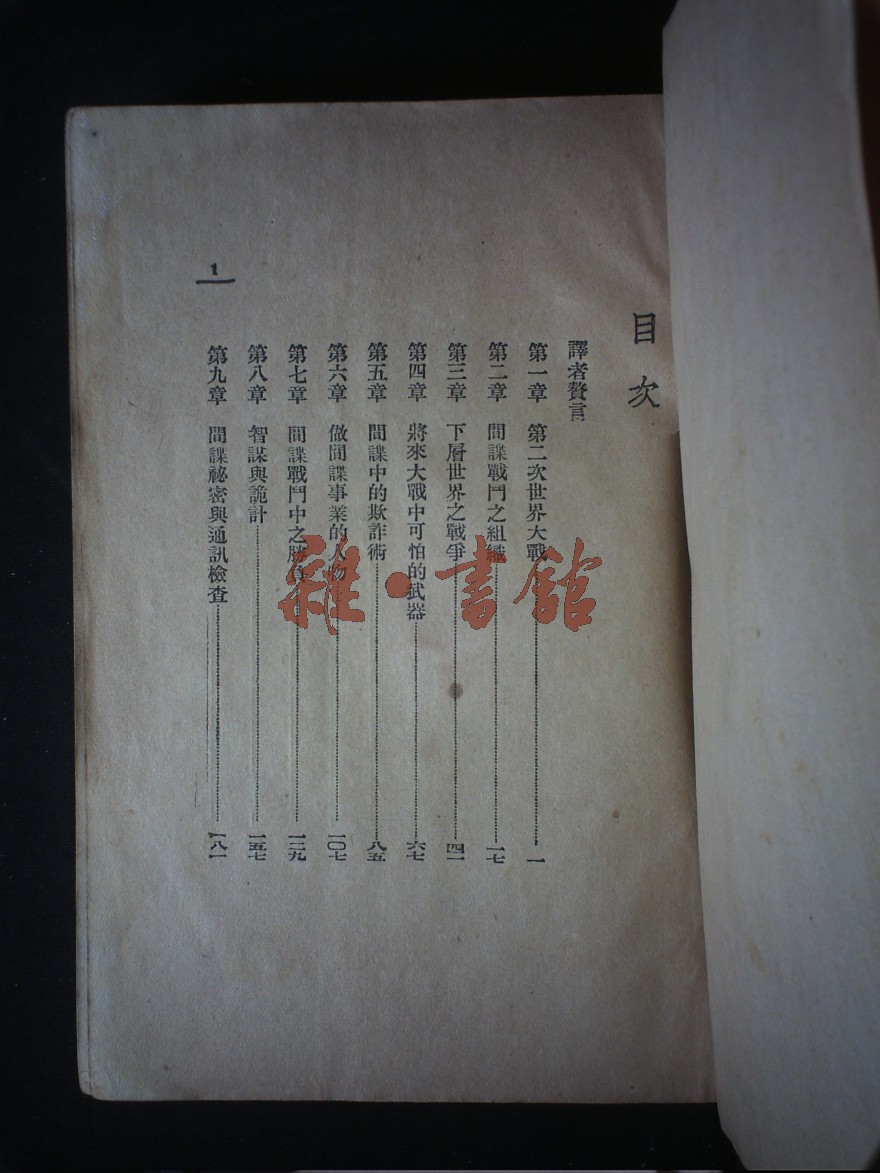 目次
譯者贅言
第一章 第二次世界大戰…一
第二章 間諜戰鬥之組織…一七
第三章 下層世界之戰爭…四一
第四章 將來大戰中可怕的武器…六七
第五章 間諜中的欺詐術…八五
第六章 做間諜事業的人物…一〇七
第七章 間諜戰鬥中之勝負…一二九
第八章 智謀與詭計…一五七
第九章 間諜祕密與通訊檢查…一八一
1
雜·書館